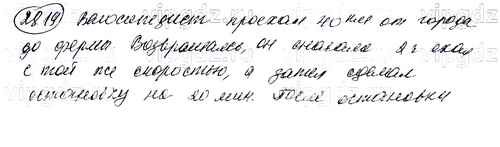 28.19) Велосипедист проехал 40 км от города
до фермы. Возвращаясь, он сначала 2 ч ехал
с той же скоростью, а затем сделал
остановку на 20 мин. После остановки